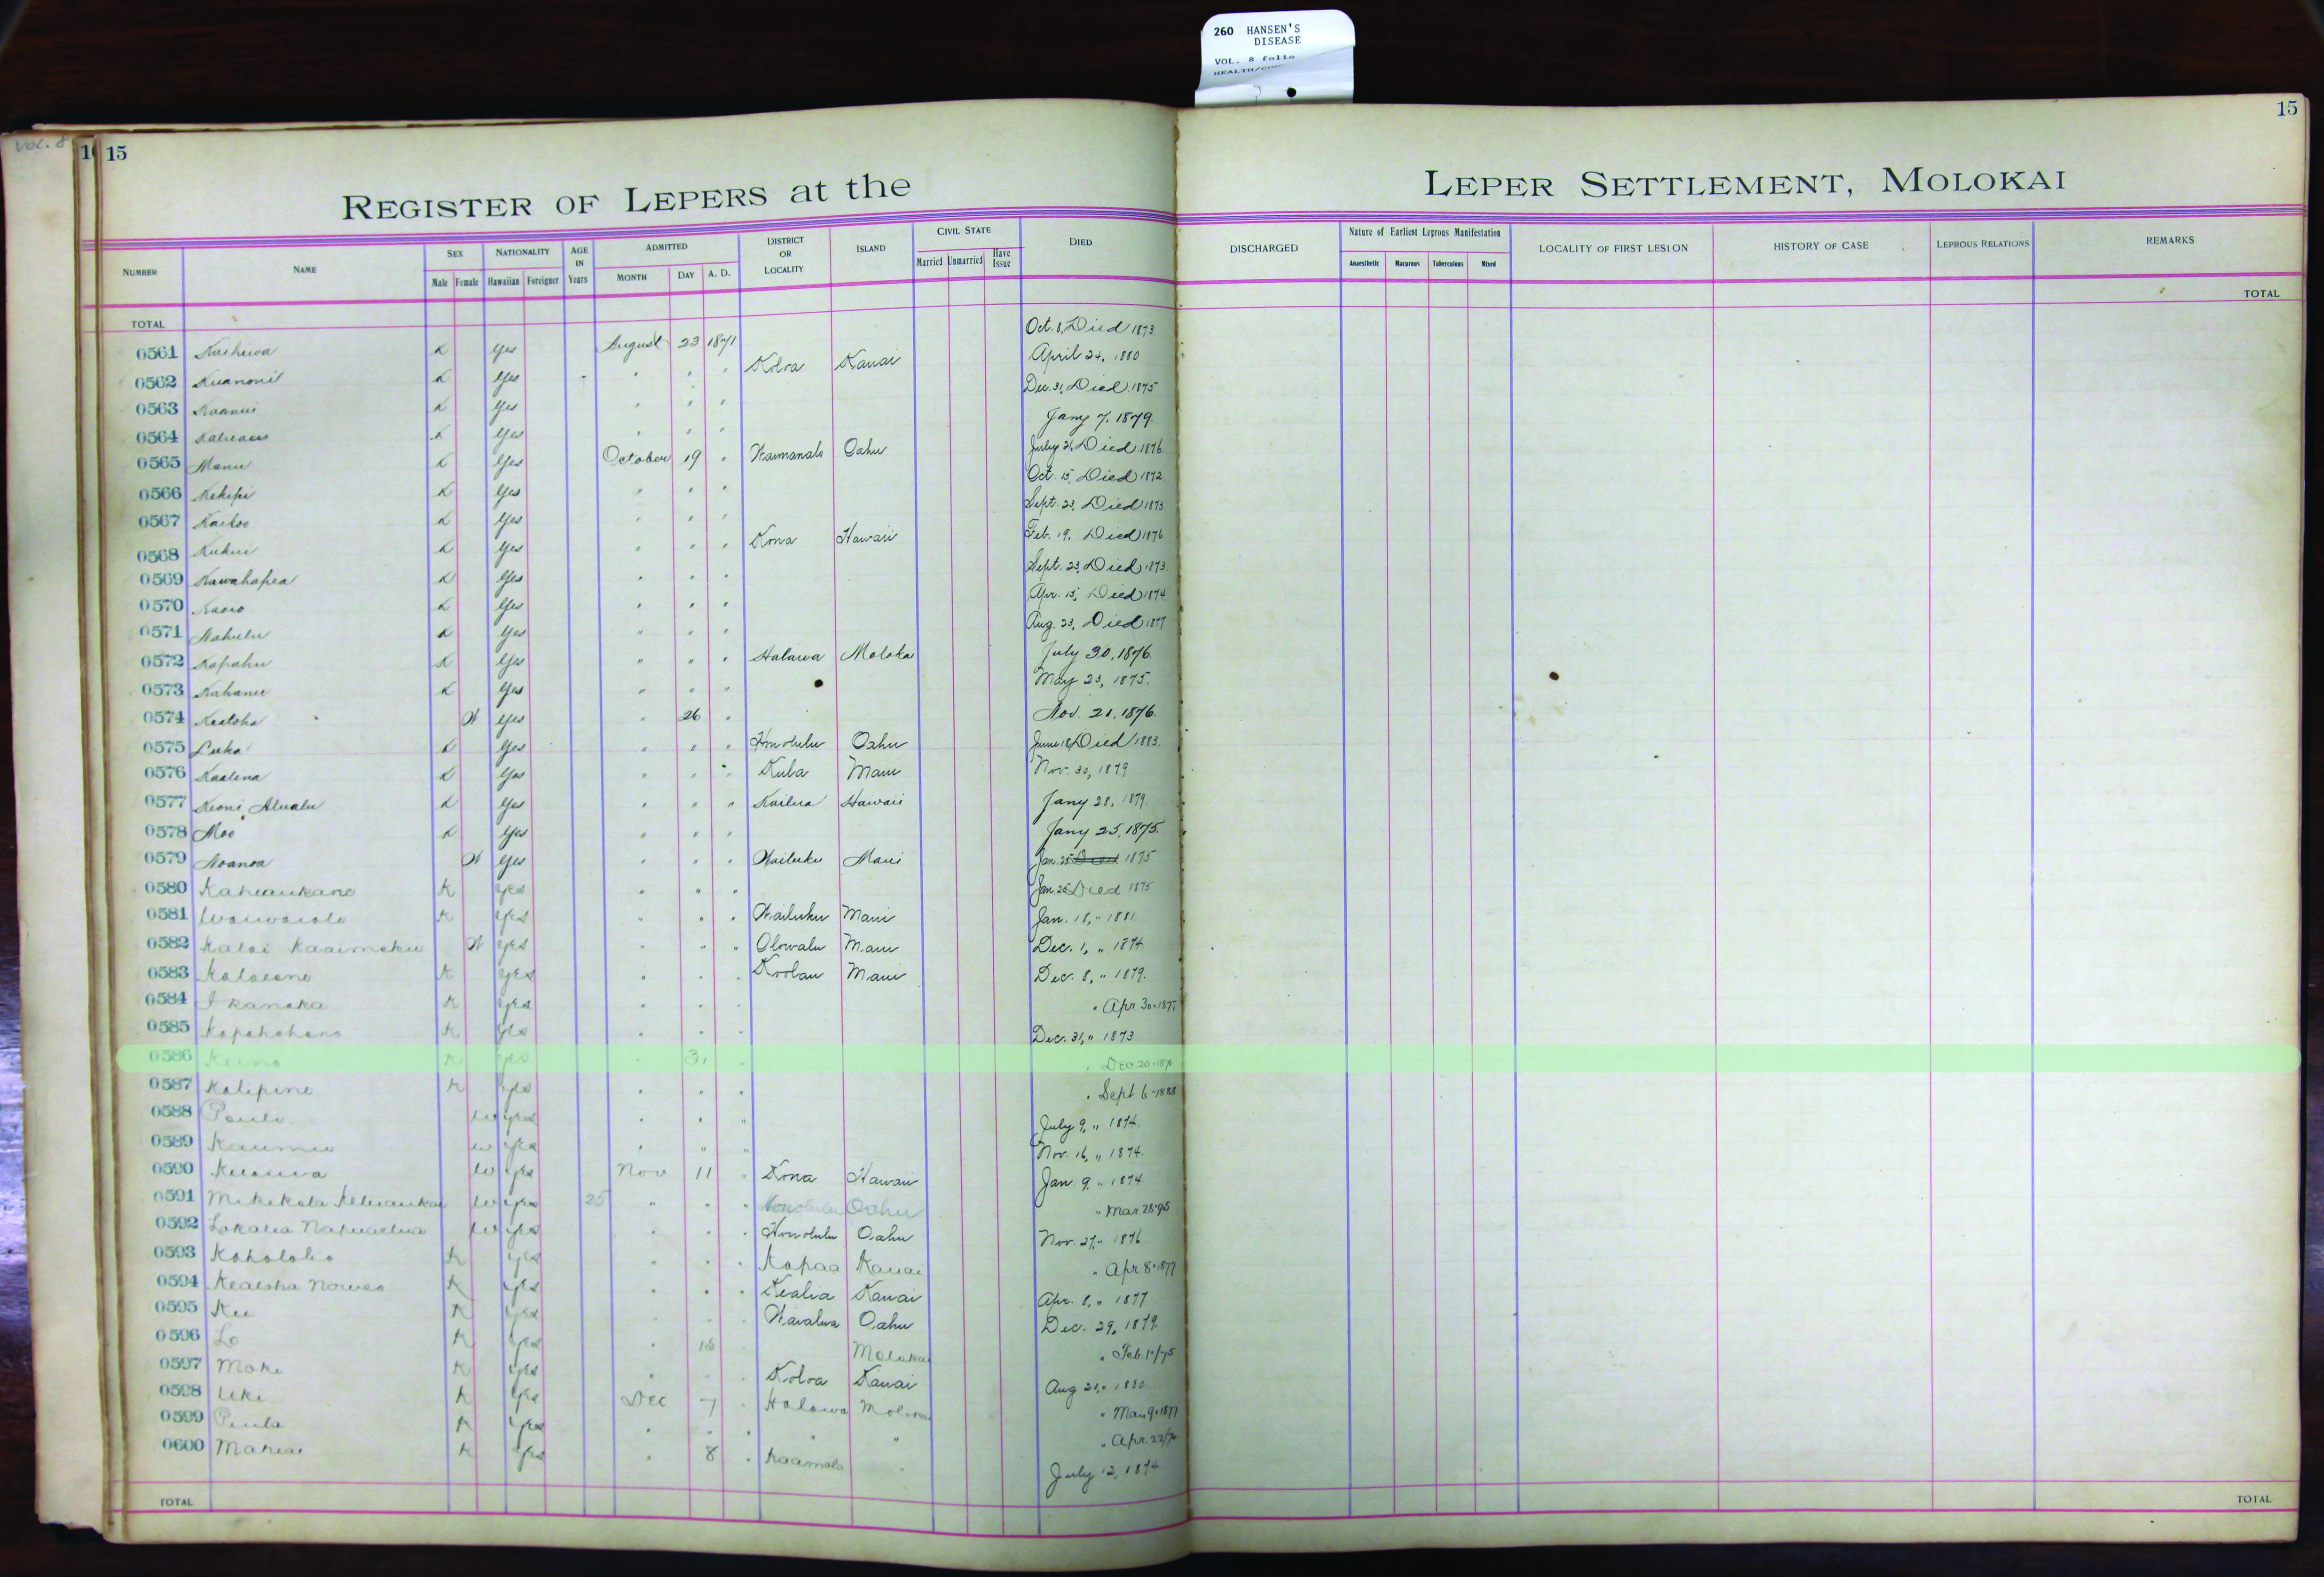 260 HANSEN'S
DISEASE
VOL. 8 folio
VOL. 8
15
15
REGISTER OF LEPERS at the LEPER SETTLEMENT, MOLOKAI
NUMBER NAME SEX Male Female NATIONALITY Hawaiian Foreigner AGE IN Years ADMITTED MONTH DAY A. D. DISTRICT OR LOCALITY ISLAND CIVIL STATE Married Unmarried Have Issue DIED DISCHARGED Nature of Earliest Leprous Manifestation Anaesthetic Macarous Tuberculous Mixed LOCALITY OF FIRST LESION HISTORY OF CASE LEPROUS RELATIONS REMARKS
TOTAL TOTAL
0561 K Yes August 23 1871 Oct. 8, Died 1873
0562 K Yes " " " Koloa Kauai April 24, 1880
0563 K Yes " " " Dec. 31, Died 1875
0564 K Yes " " " Jany 7, 1879.
0565 Manu K Yes October 19 " Waimanalo Oahu July 21, Died 1876
0566 Kekipi K Yes " " " Oct. 15, Died 1872
0567 Kaikoo K Yes " " " Sept. 23, Died 1873
0568 Kukui K Yes " " " Kona Hawaii Feb. 19, Died 1876
0569 Kawahapea K Yes " " " Sept. 23, Died 1873
0570 K Yes " " " Apr. 15, Died 1874
0571 Nahulu K Yes " " " Aug. 23, Died 1877
0572 Kapahu K Yes " " " Halawa Moloka July 30, 1876
0573 Kahanu K Yes " " " May 23, 1875.
0574 Kealoha W Yes " 26 " Nov. 21, 1876.
0575 Luka K Yes " " " Honolulu Oahu June 18, Died 1883.
0576 Kaalena K Yes " " " Kula Maui Nov. 30, 1879
0577 Keoni Alualu K Yes " " " Kailua Hawaii Jany 28, 1879.
0578 Moo K Yes " " " Jany 25, 1875.
0579 Noanoa W Yes " " " Wailuku Maui Jan. 25 Died 1875
0580 Kahaukane K Yes " " " Jan. 25 Died 1875
0581 Waiwaiole K Yes " " " Wailuku Maui Jan. 18, " 1881.
0582 Kalai Kaaimoku W Yes " " " Olowalu Maui Dec. 1, " 1874
0583 K Yes " " " Koolau Maui Dec. 8, " 1879.
0584 I kanaka K Yes " " " " Apr. 30 - 1877
0585 Kapahohano K Yes " " " Dec. 31, " 1873
0586 K Yes " 31 " " Dec 20
0587 Kalipine K Yes " " " " Sept 6 - 1888
0588 Pauli W Yes " " " July 9, " 1874
0589 Kaumu W Yes " " " Nov. 16, " 1874.
0590 W Yes Nov 11 " Kona Hawaii Jan. 9, " 1874
0591 Mikekala W Yes 25 " " " Honolulu Oahu " Mar. 28-95
0592 Lokalia W Yes " " " Honolulu Oahu Nov. 27, " 1876
0593 Kahololio K Yes " " " Kapaa Kauai " Apr 8 - 1877
0594 Kealoha Noweo K Yes " " " Kealia Kauai Apr. 8, " 1877
0595 Ku K Yes " " " Waialua Oahu Dec. 29, 1879
0596 Lo K Yes " 18 " Molokai " Feb. 1"/75
0597 Moke K Yes " " " Koloa Kauai Aug 20, " 1880
0598 Uki K Yes Dec 7 " Halawa Molokai " Mar. 9 - 1877
0599 Paula K Yes " " " " " " Apr. 22/74
0600 Mahiai K Yes " 8 " Kaamola " July 12, 1874.
TOTAL TOTAL